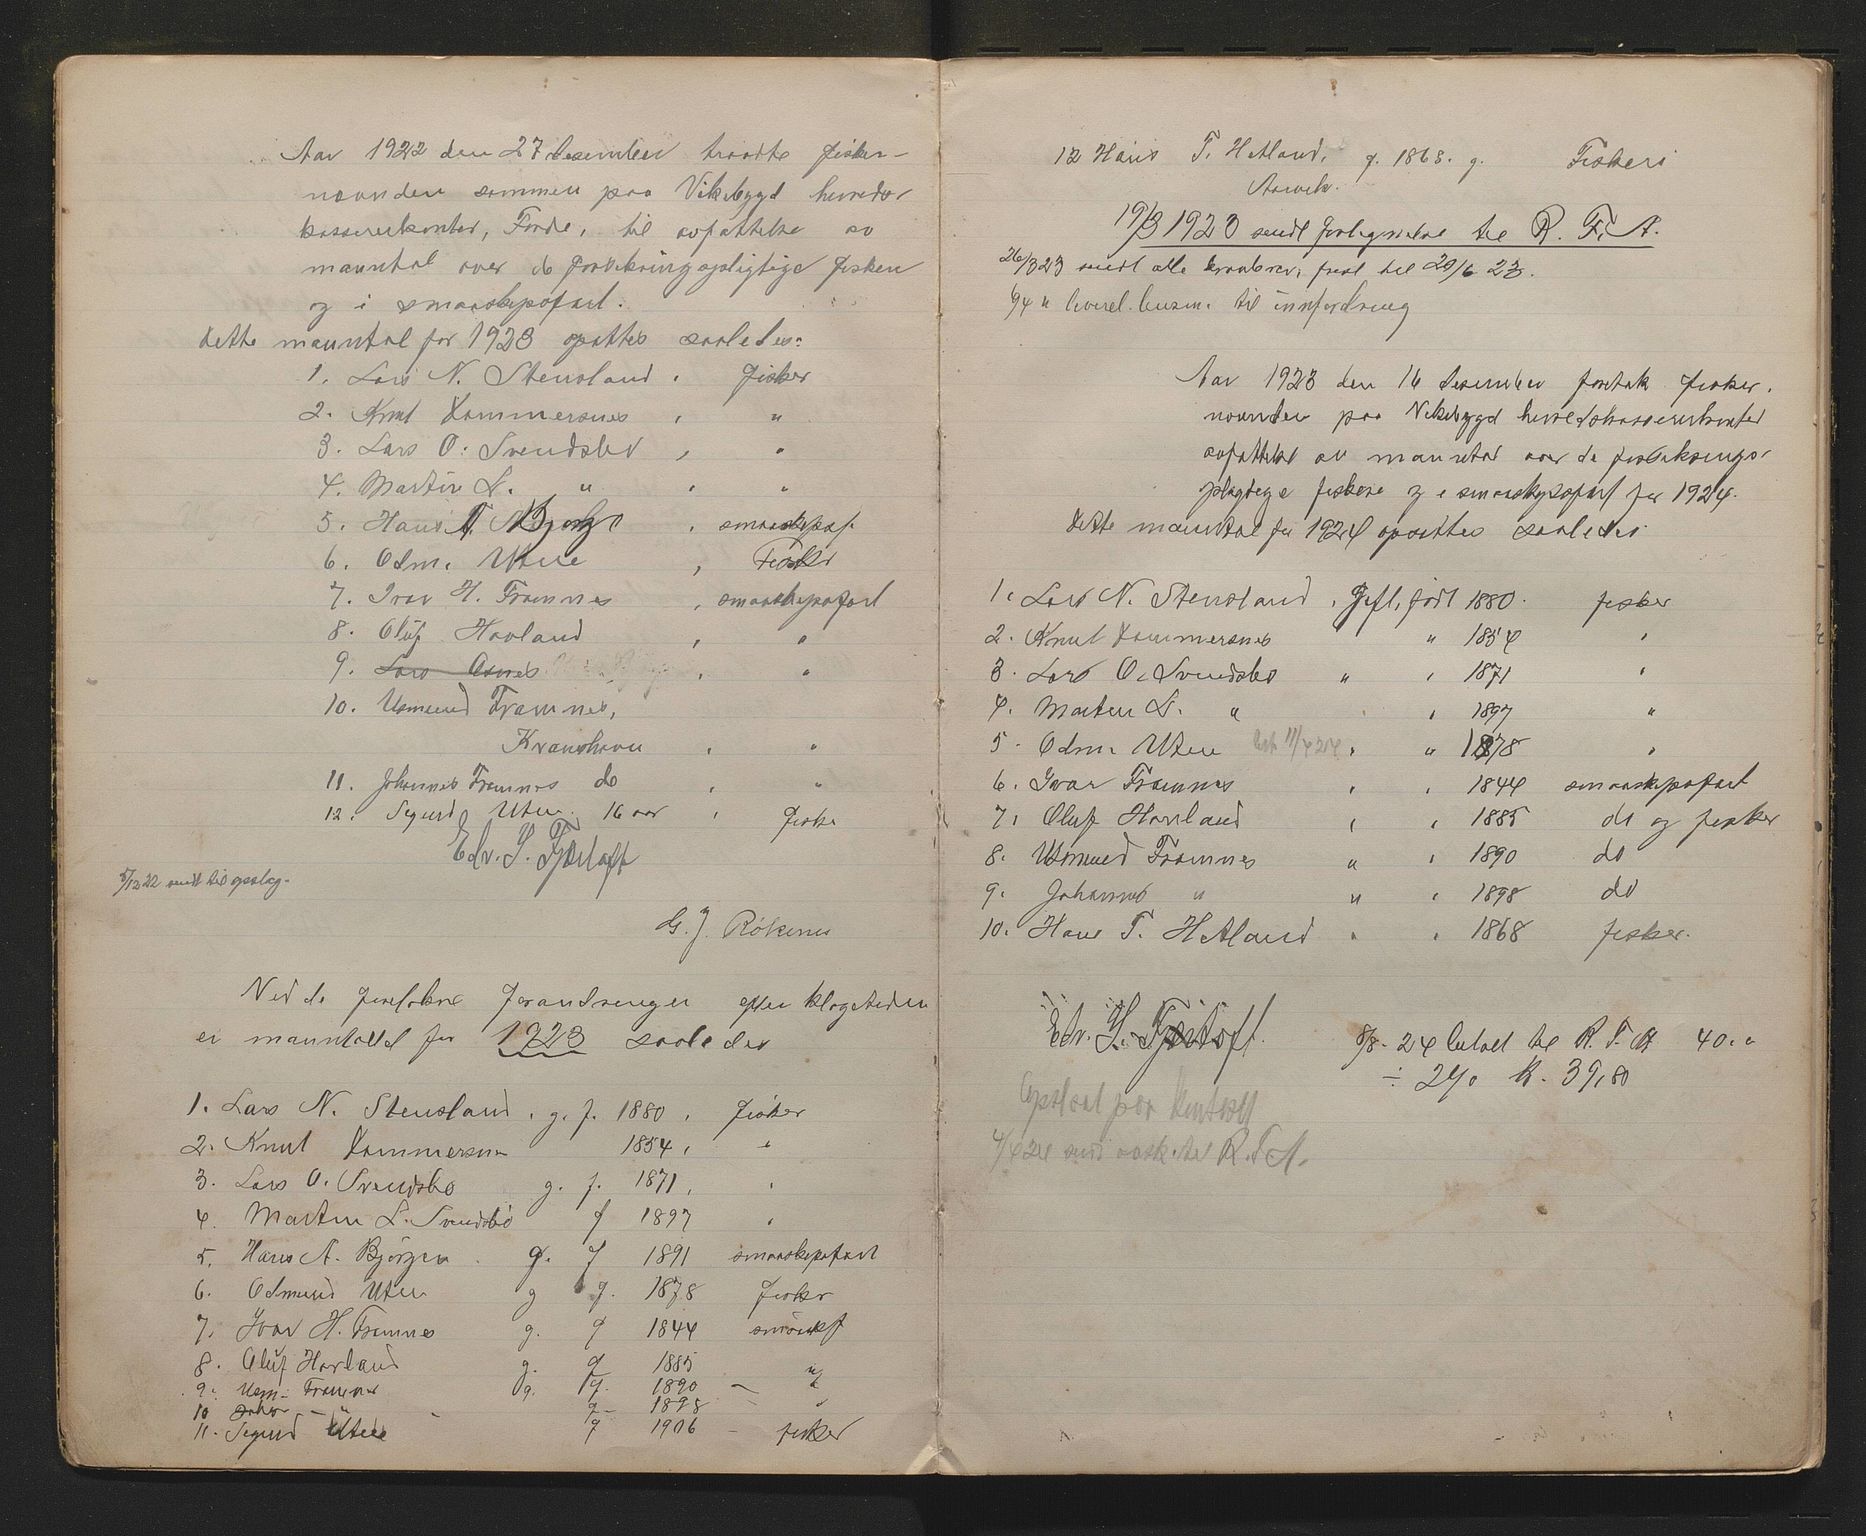 Aar 1922 den 27 desember traadte fisker-
nævnden sammen paa Vikebygd herreds-
kasserkontor, Førde, til avfattelse av
manntal over de forsikringspligtige fiskere
og i smaaskipsfart.
Dette manntal for 1923 opsattes saaledes:
1. Lars N. Stensland , fisker
2. Knut Kammersnes , "
3. Lars O. Svendsbø , "
4. Martin L. " , "
5. Hans , smaaskipsf.
6. Odm. Utne , Fisker
7. Ivar H. Framnes , smaaskipsfart
8. Oluf Hovland , "
9. Lars Osnes , "
10. Usmund Framnes,
Kvanshavn , "
11. Johannes Framnes do , "
12. Sigurd Utne, 16 aar , fisker
Edv. S. Fjøtoft
5/12 22 sendt til opslag.
G. J. Røkenes
Ved de foretakne forandringer efter klagetiden
er manntallet for 1923 saaledes
1. Lars N. Stensland , g. f. 1880 , fisker
2. Knut Kammersnes 1854 , "
3. Lars O. Svendsbø g. f. 1871 , "
4. Martin L. Svendsbø f 1897 "
5. Hans A. Bjørgen . g. f 1891 smaaskipsfart
6. Odmund Utne g f. 1878 fisker
7. Ivar H. Framnes g. f 1844 smaaskf
8. Oluf Hovland g. f 1885 "
9. Usm. Framnes g. f. 1890 — "
10 Johan — " — f 1898 — "
11. Sigurd Utne f 1906 — fisker
12 Hans T. Hetland, f. 1868. g. Fiskeri
19/3 1923 sendt forlegnelse til R. F. A.
26/3 23 sendt alle kravbrev, frist til 20/6 23.
til innfordring
Aar 1923 den 16 desember foretok fisker-
nævnden paa Vikebygd herredskasserkontor
avfattelse av manntal over de forsikrings-
pligtige fiskere og i smaaskipsfart for 1924.
Dette manntal for 1924 opsattes saaledes
1. Lars N. Stensland , Gift, født 1880. fisker
2. Knut Kammersnes " 1854 "
3. Lars O. Svendsbø " , 1871 "
4. Martin L. " , 1897 "
5. Odm. Utne , " 1878 "
6. Ivar Framnes , , 1844 smaaskipsfart
7. Oluf Hovland , , 1885 do og fisker
8. Usmund Framnes " , 1890 do
9. Johannes " " , 1898 do
10. Hans T. Hetland , , 1868 fisker.
Edv. S. Fjøtoft.
8/8 - 24 betalt til R. F. A 40. "
÷ 2% K. 39,80
Opslaat paa
4/4 24 sendt avsk. til R. F. A.